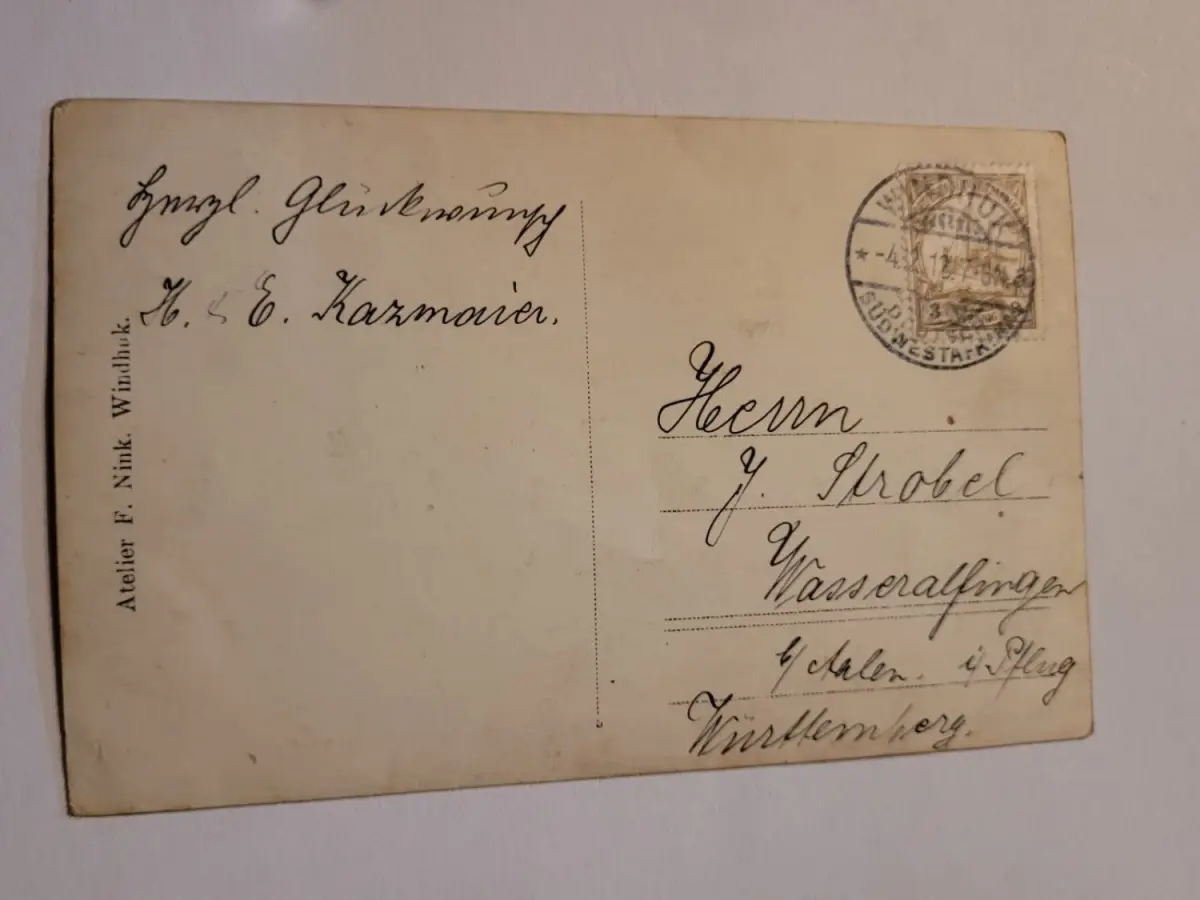 Herzl. Glückwunsch
H. & E. Kazmaier.
Atelier F. Nink. Windhuk.
WINDHUK
DEUTSCH-
SÜDWESTAFRIKA
3
Herrn
J. Strobel
Wasseralfingen
b/ Aalen. i/ Pflug
Württemberg.